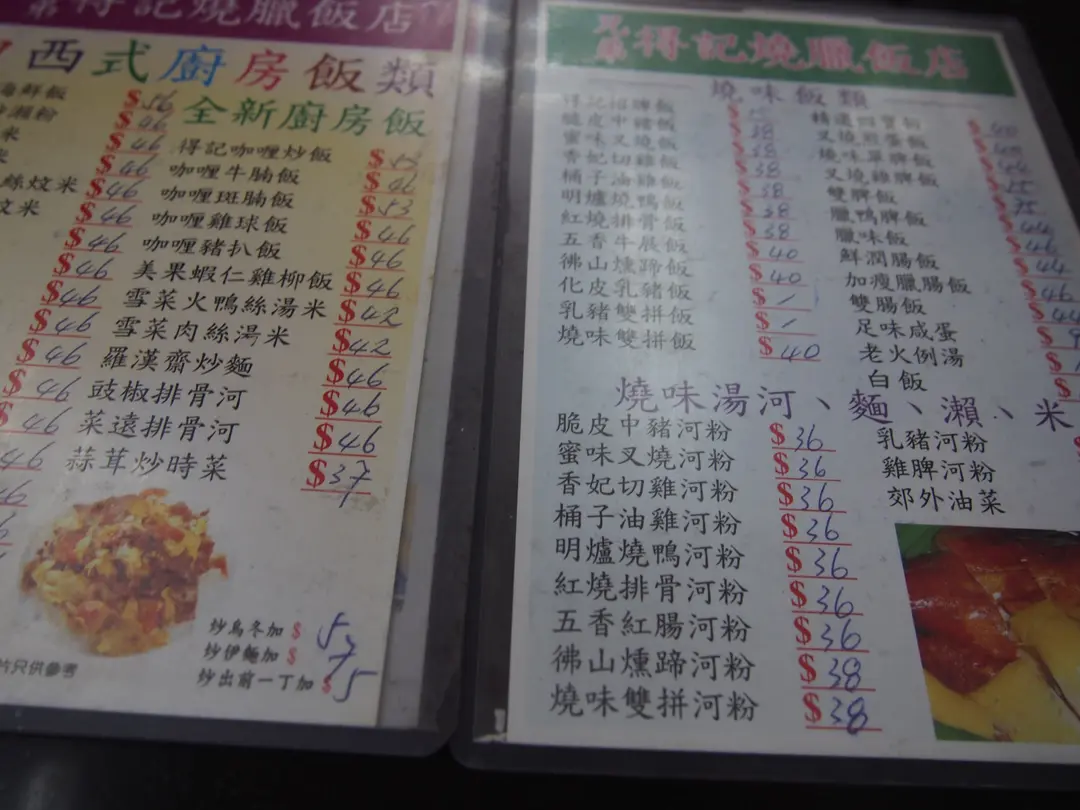 得記燒臘飯店
西式廚房飯類
海鮮飯 $56
瀨粉 $46
米 $46
$46
絲炆米 $46
炆米 $46
$46
$46
$46
$46
$46
$46
$46
46
全新廚房飯
得記咖喱炒飯 $53
咖喱牛腩飯
咖喱斑腩飯 $53
咖喱雞球飯 $46
咖喱豬扒飯 $46
美果蝦仁雞柳飯 $46
雪菜火鴨絲湯米 $42
雪菜肉絲湯米 $42
羅漢齋炒麵 $46
豉椒排骨河 $46
菜遠排骨河 $46
蒜茸炒時菜 $37
炒烏冬加 $5
炒伊麵加 $
炒出前一丁加 $
片只供參考
得記燒臘飯店
燒味飯類
得記招牌飯
脆皮中豬飯 $38
蜜味叉燒飯 $38
香妃切雞飯 $38
桶子油雞飯 $38
明爐燒鴨飯 $38
紅燒排骨飯 $38
五香牛展飯 $40
彿山燻蹄飯 $40
化皮乳豬飯 $/
乳豬雙拼飯 $/
燒味雙拼飯 $40
精選四寶飯
叉燒煎蛋飯
燒味單脾飯
叉燒雞脾飯
雙脾飯
臘鴨脾飯 $44
臘味飯 $46
鮮潤腸飯 $44
加瘦臘腸飯 $46
雙腸飯 $44
足味咸蛋
老火例湯
白飯
燒味湯河、麵、瀨、米
脆皮中豬河粉 $36
蜜味叉燒河粉 $36
香妃切雞河粉 $36
桶子油雞河粉 $36
明爐燒鴨河粉 $36
紅燒排骨河粉 $36
五香紅腸河粉 $36
彿山燻蹄河粉 $38
燒味雙拼河粉 $38
乳豬河粉
雞脾河粉
郊外油菜